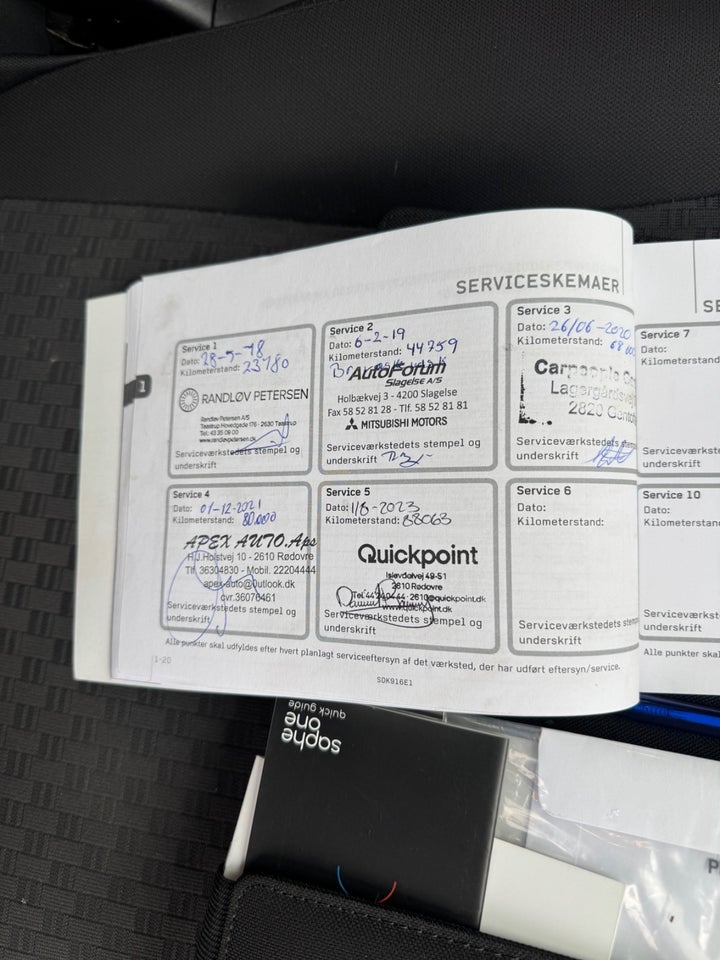 SERVICESKEMAER
Service 1
Dato: 28-5-18
Kilometerstand: 23780
RANDLØV PETERSEN
Randløv Petersen A/S
Taastrup Hovedgade 176 - 2630 Taastrup
Tel: 43 35 09 00
www.randlovpetersen.dk
Serviceværkstedets stempel og
underskrift
Service 2
Dato: 6-2-19
Kilometerstand: 44759
AutoForum
Slagelse A/S
Holbækvej 3 - 4200 Slagelse
Fax 58 52 81 28 - Tlf. 58 52 81 81
MITSUBISHI MOTORS
Serviceværkstedets stempel og
underskrift
Service 3
Dato: 26/06-2020
Kilometerstand: 68
Carpeople
Lagergårdsvej
2820
Serviceværkstedets stempel
underskrift
Service 4
Dato: 01-12-2021
Kilometerstand: 80.000
APEX AUTO.Aps
H.J.Holstvej 10 - 2610 Rødovre
Tlf. 36304830 - Mobil. 22204444
apex-auto@outlook.dk
cvr.36076461
Serviceværkstedets stempel og
underskrift
Service 5
Dato: 1/8-2023
Kilometerstand: 88063
Quickpoint
Islevdalvej 49-51
2610 Rødovre
2610@quickpoint.dk
www.quickpoint.dk
Serviceværkstedets stempel og
underskrift
Service 6
Dato:
Kilometerstand:
Serviceværkstedets stem
underskrift
Alle punkter skal udfyldes efter hvert planlagt serviceeftersyn af det værksted, der har udført eftersyn/service.
1-20
SDK916E1
1
SE
Service 7
Dato:
Kilometerstand
Serviceværkste
underskrift
Service 10
Dato:
Kilometerstan
Serviceværkste
underskrift
Alle punkter sk
saphe
one
quick guide
P